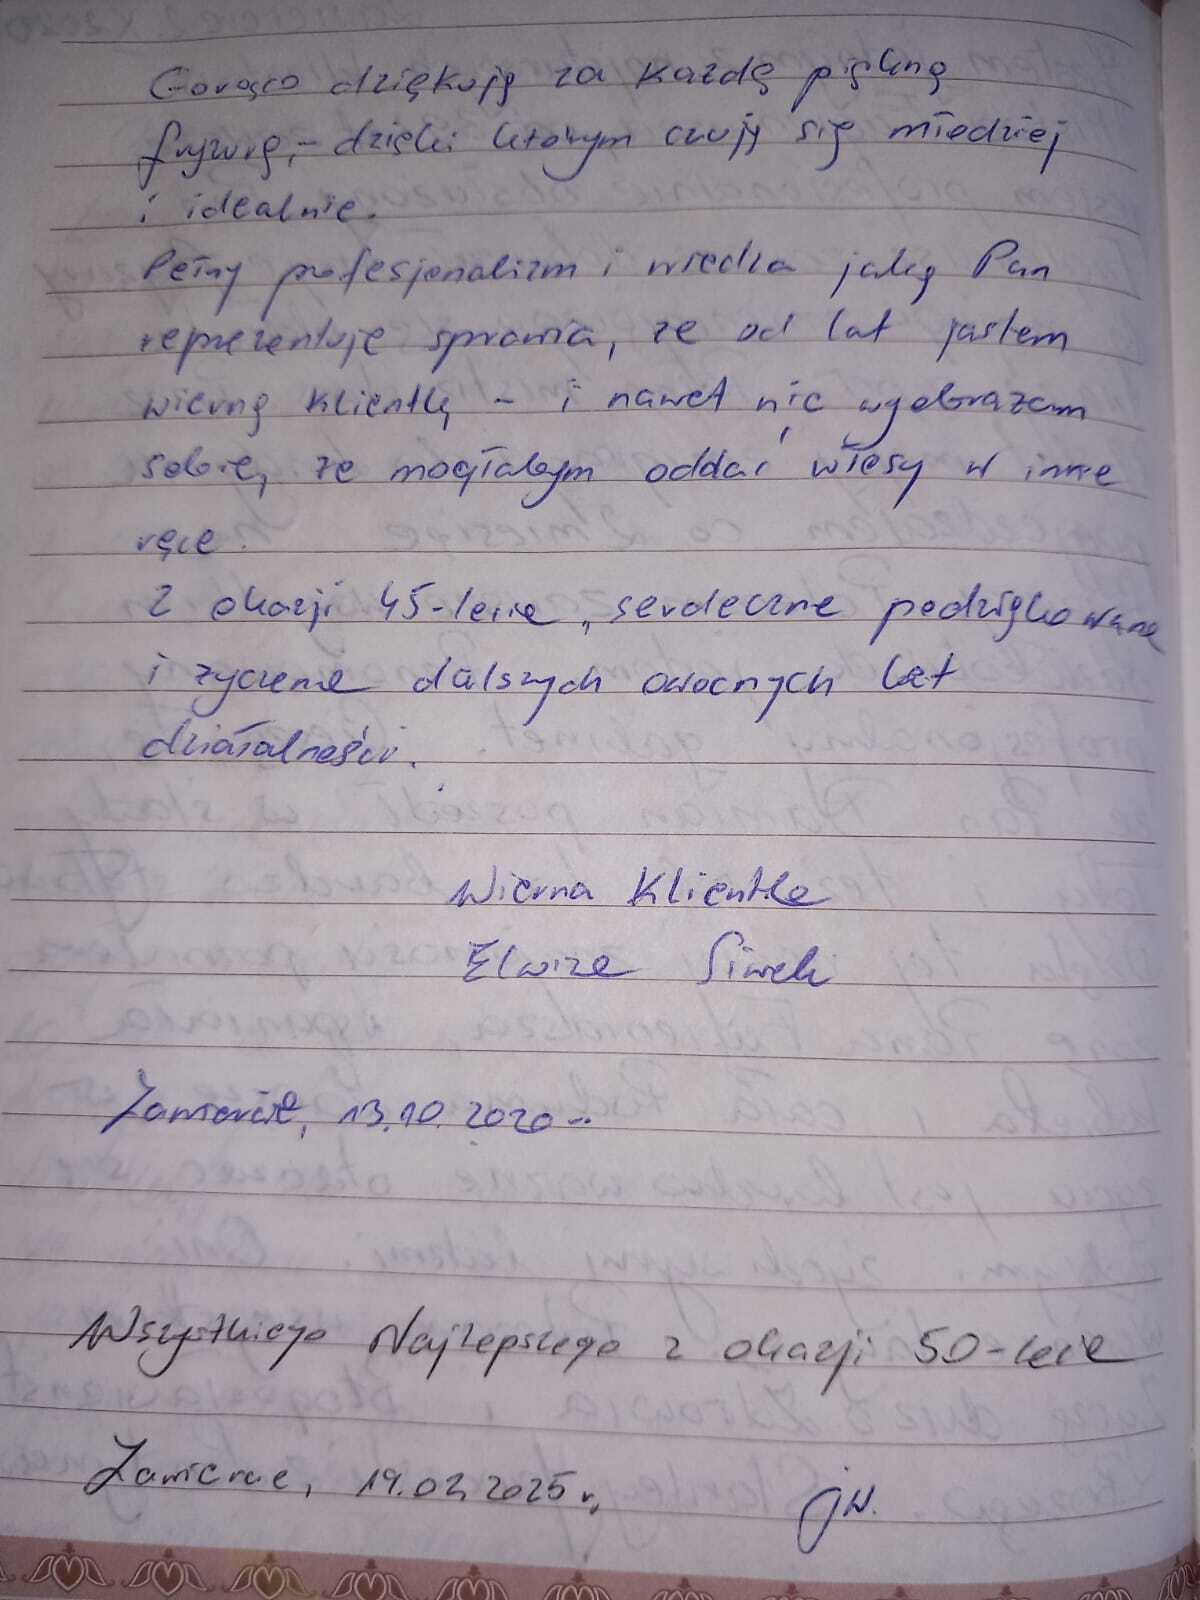 Gorąco dziękuję za każdą piękną
fryzurę, – dzięki którym czuję się młodziej
i idealnie.
Pełny profesjonalizm i wiedza jaką Pan
reprezentuje sprawia, że od lat jestem
wierną klientką – i nawet nie wyobrażam
sobie, że mogłabym oddać włosy w inne
ręce.
Z okazji 45-lecia, serdeczne podziękowania
i życzenia dalszych owocnych lat
działalności.
Wierna Klientka
Elwira Siwek
Zawiercie, 13.10.2020
Wszystkiego Najlepszego z okazji 50-lecia
Zawiercie, 19.02.2025 r.